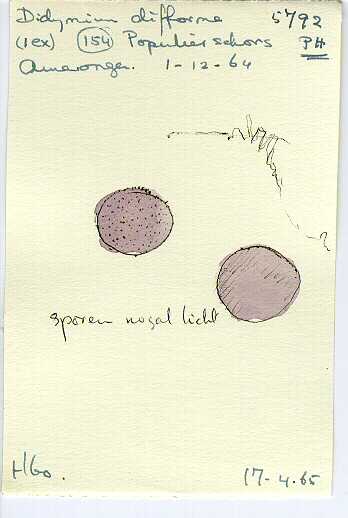 Didymium difforme 5792
(1 ex) (154) Populier schors PH
Amerongen. 1-12-64
sporen nogal licht
H60.
17-4-65